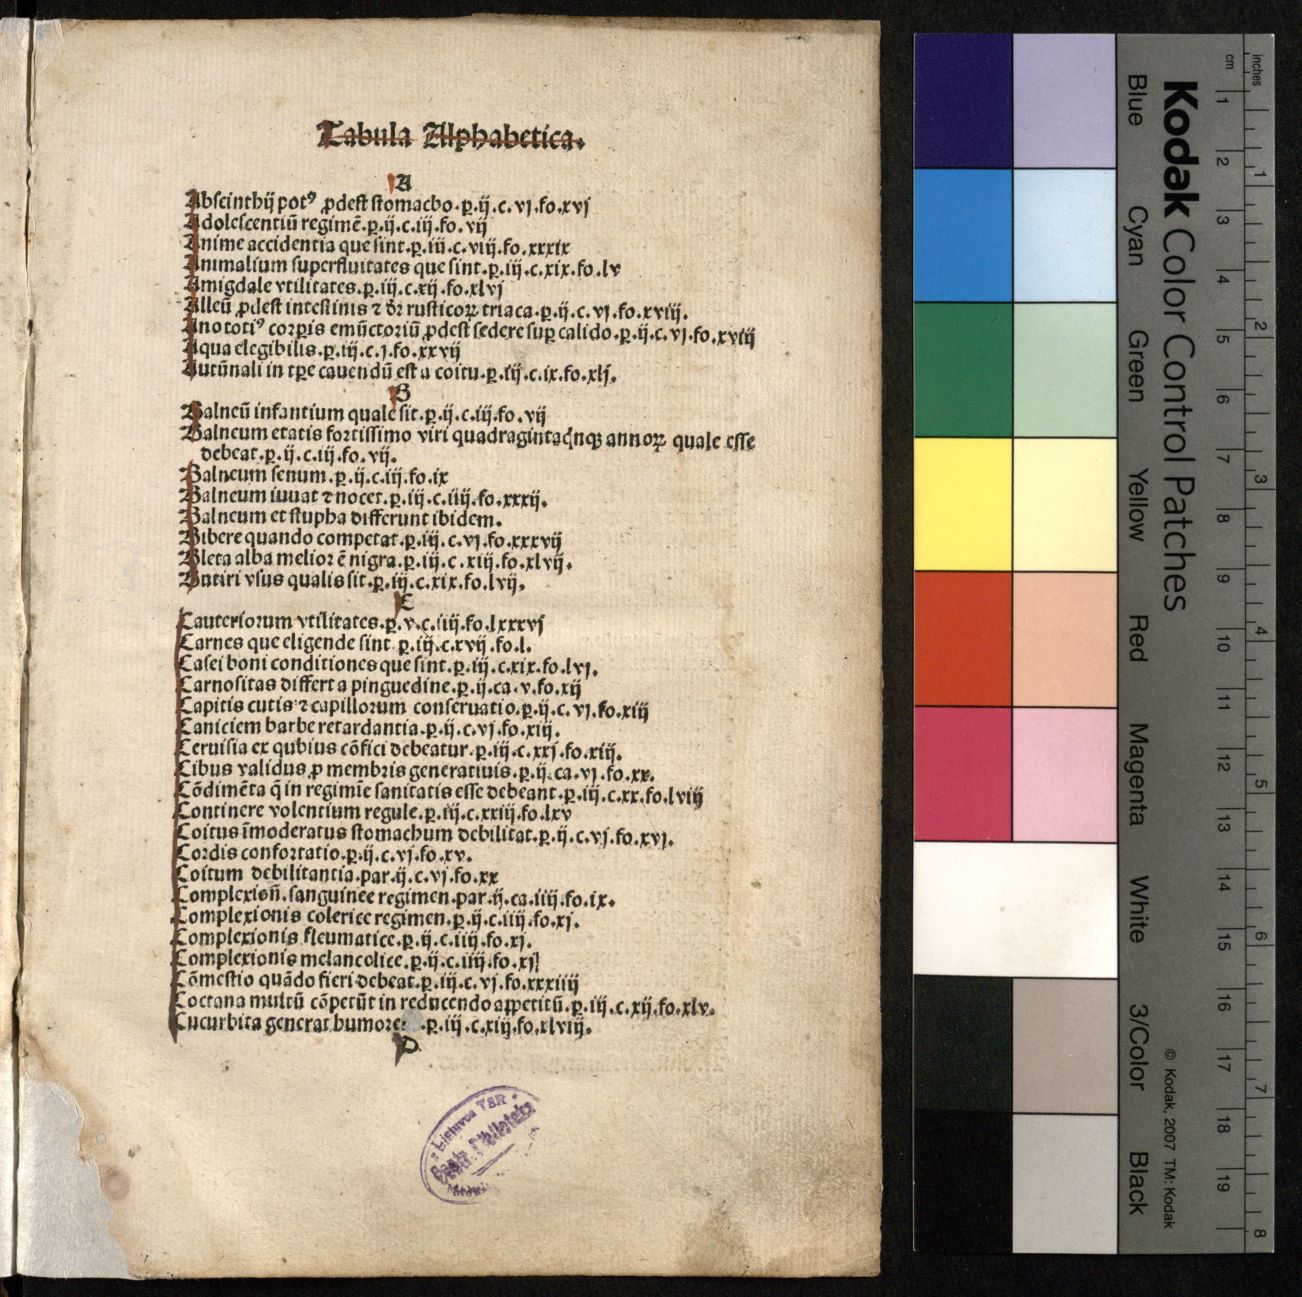 Tabula Alphabetica.
A
Abscinthij potꝰ ꝓdest stomacho.p̲.ij.c.vj.fo.xvj
Adolescentiū regimē.p̲.ij.c.iij.fo.vij
Anime accidentia que sint.p̲.iij.c.viij.fo.xxxix
Animalium superfluitates que sint.p̲.iij.c.xix.fo.lv
Amigdale vtilitates.p̲.iij.c.xij.fo.xlvj
Alleū ꝓdest intestinis ⁊ dr̄ rusticoꝝ triaca.p̲.ij.c.vj.fo.xviij.
Ano totiꝰ corp̲is emūctoriū ꝓdest sedere sup̲ calido.p̲.ij.c.vj.fo.xviij
Aqua elegibilis.p̲.iij.c.j.fo.xxvij
Autūnali in tp̲e cauendū est a coitu.p̲.iij.c.ix.fo.xlj.
B
Balneū infantium quale sit.p̲.ij.c.iij.fo.vij
Balneum etatis fortissimo viri quadragintaq̇nqꝫ annoꝝ quale esse
debeat.p̲.ij.c.iij.fo.vij.
Balneum senum.p̲.ij.c.iij.fo.ix
Balneum iuuat ⁊ nocet.p̲.iij.c.iiij.fo.xxxij.
Balneum et stupha differunt ibidem.
Bibere quando competat.p̲.iij.c.vj.fo.xxxvij
Bleta alba melior ē nigra.p̲.iij.c.xiij.fo.xlvij.
Butiri vsus qualis sit.p̲.iij.c.xix.fo.lvij.
C
Cauteriorum vtilitates.p̲.v.c.iiij.fo.lxxxvj
Carnes que eligende sint.p̲.iij.c.xvij.fo.l.
Casei boni conditiones que sint.p̲.iij.c.xix.fo.lvj.
Carnositas differt a pinguedine.p̲.ij.ca.v.fo.xij
Capitis cutis ⁊ capillorum conseruatio.p̲.ij.c.vj.fo.xiij
Caniciem barbe retardantia.p̲.ij.c.vj.fo.xiij.
Ceruisia ex qubius cōfici debeatur.p̲.iij.c.xxj.fo.xiij.
Cibus validus ꝓ membris generatiuis.p̲.ij.ca.vj.fo.xx.
Cōdimēta q̄ in regimie sanitatis esse debeant.p̲.iij.c.xx.fo.lviij
Continere volentium regule.p̲.iij.c.xxiij.fo.lxv
Coitus īmoderatus stomachum debilitat.p̲.ij.c.vj.fo.xvj.
Cordis confortatio.p̲.ij.c.vj.fo.xv.
Coitum debilitantia.par.ij.c.vj.fo.xx
Complexion̄.sanguinee regimen.par.ij.ca.iiij.fo.ix.
Complexionis colerice regimen.p̲.ij.c.iiij.fo.xj.
Complexionis fleumatice.p̲.ij.c.iiij.fo.xj.
Complexionis melancolice.p̲.ij.c.iiij.fo.xij
Cōmestio quādo fieri debeat.p̲.iij.c.vj.fo.xxxiiij
Coctana multū cōpetūt in reducendo appetitū.p̲.iij.c.xij.fo.xlv.
Cucurbita generat humore .p̲.iij.c.xiij.fo.xlviij.
D
Lietuvos TSR
Kodak Color Control Patches
Blue
Cyan
Green
Yellow
Red
Magenta
White
3/Color
Black
© Kodak, 2007 TM: Kodak
cm 1 2 3 4 5 6 7 8 9 10 11 12 13 14 15 16 17 18 19
inches 1 2 3 4 5 6 7 8